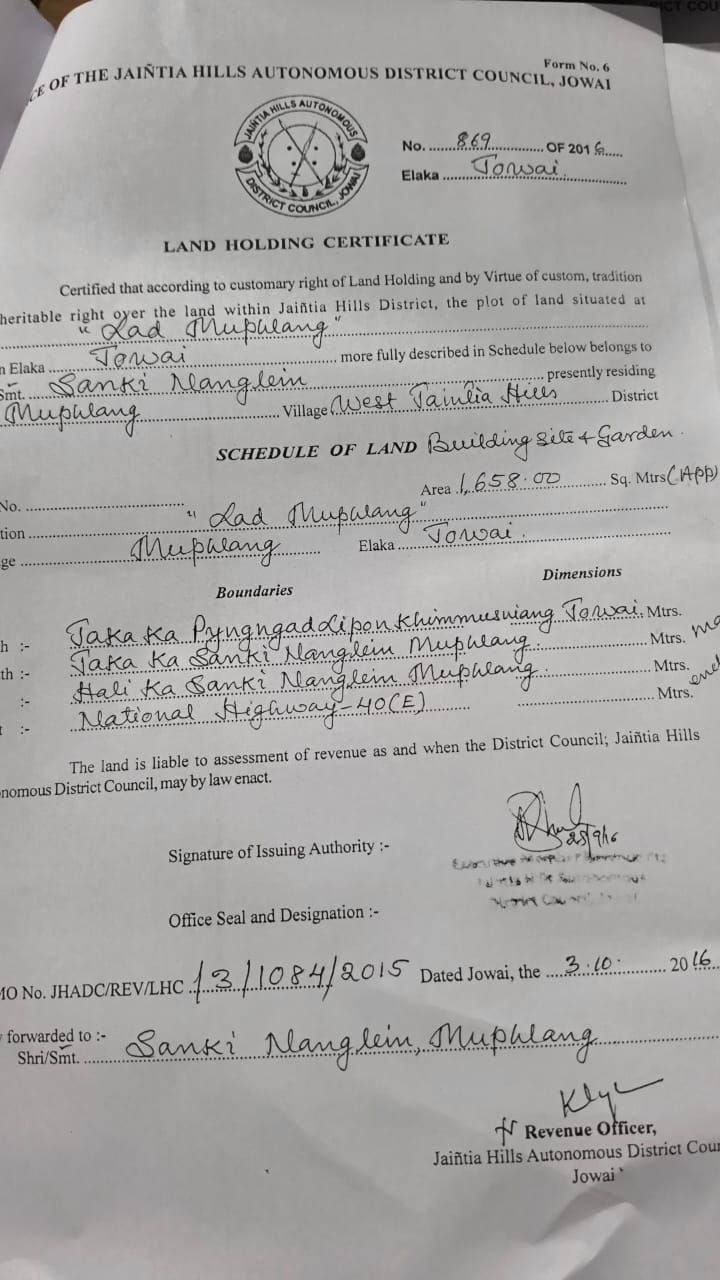 Form No. 6
CE OF THE JAIÑTIA HILLS AUTONOMOUS DISTRICT COUNCIL, JOWAI
JAIÑTIA HILLS AUTONOMOUS
DISTRICT COUNCIL, JOWAI
No. 869 OF 2016
Elaka Jowai
LAND HOLDING CERTIFICATE
Certified that according to customary right of Land Holding and by Virtue of custom, tradition
heritable right over the land within Jaiñtia Hills District, the plot of land situated at
"Lad Muphlang"
n Elaka Jowai more fully described in Schedule below belongs to
Smt. Sanki Nanglein presently residing
Muphlang Village West Jaintia Hills District
SCHEDULE OF LAND Building Site & Garden.
No. Area 1,658.00 Sq. Mtrs (APP)
tion "Lad Muphlang"
ge Muphlang Elaka Jowai.
Boundaries Dimensions
h :- Jaka Ka Mtrs.
th :- Jaka Ka Sanki Nanglein Muphlang. Mtrs.
:- Hali Ka Sanki Nanglein Muphlang. Mtrs.
t :- National Highway-40(E) Mtrs.
The land is liable to assessment of revenue as and when the District Council; Jaiñtia Hills
onomous District Council, may by law enact.
Signature of Issuing Authority :- 28/9/16
Office Seal and Designation :-
MO No. JHADC/REV/LHC /3/1084/2015 Dated Jowai, the 3.10. 2016
forwarded to :-
Shri/Smt. Sanki Nanglein, Muphlang
Revenue Officer,
Jaiñtia Hills Autonomous District Coun
Jowai